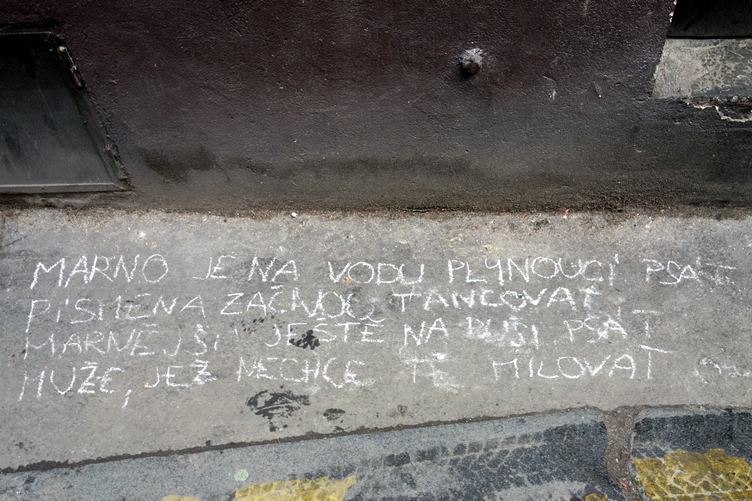 MARNO JE NA VODU PLYNOUCÍ PSÁT
PÍSMENA ZAČNOU TANCOVAT
MARNĚJŠÍ JEŠTĚ NA DUŠI PSÁT
MUŽE, JEŽ NECHCE TĚ MILOVAT